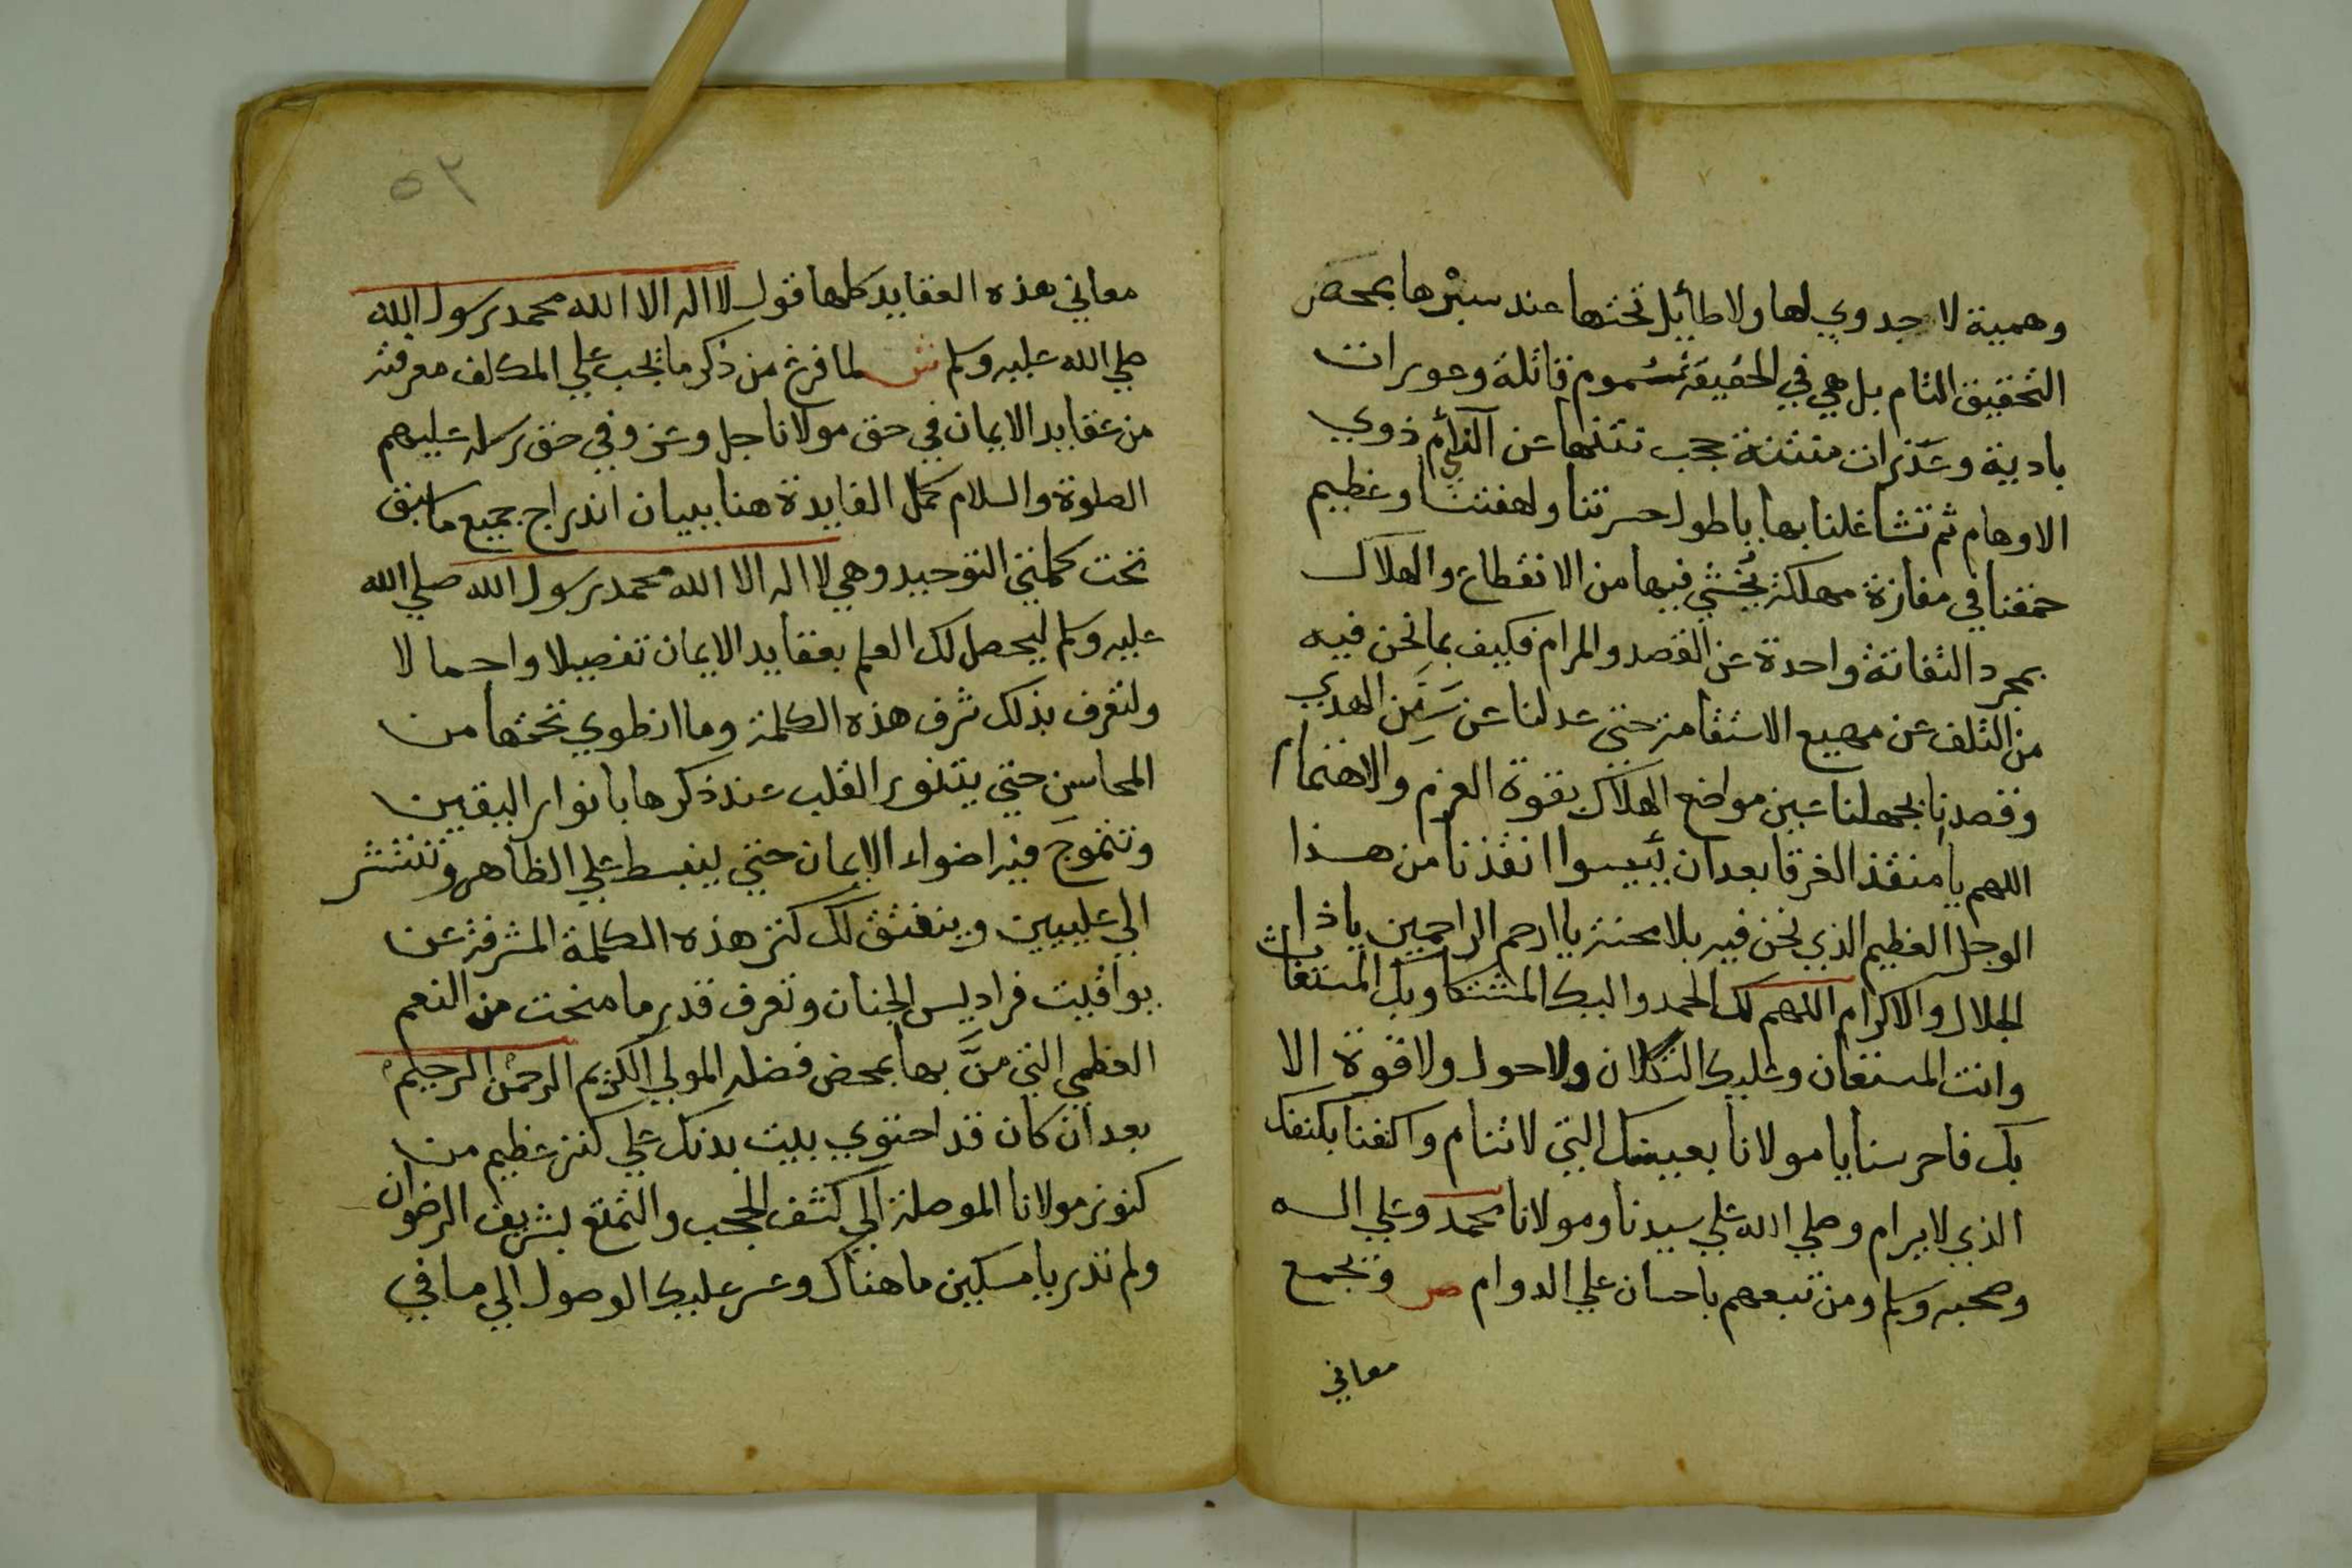 وهمية لا جدوي لها ولا طايل تحتها عند سبرها بمحض
التحقيق التام بل هي في الحقيقة سموم قاتلة وعورات
بادية وعذرات منتنة يجب تنتها عن الناس ذوي
الاوهام ثم تشاغلنا بها يا طول حسرتنا ولهفتنا وعظيم
حمقنا في مفازة مهلكة يخشي فيها من الانقطاع والهلاك
بمجرد التفاتة واحدة عن القصد والمرام فكيف بما نحن فيه
من التلف عن مهيع الاستقامة حتي عدلنا عن سنن الهدي
وقصدنا بجهلنا عين مواضع الهلاك بقوة العزم والاهتمام
اللهم يا منقذ الغرقا بعد ان ييسوا انقذنا من هذا
الوحل العظيم الذي نحن فيه بلا محنة يا ارحم الراحمين يا ذا
الجلال والاكرام اللهم لك الحمد واليك المشتكا وبك المستغاث
وانت المستعان وعليك التكلان ولا حول ولا قوة الا
بك فاحرسنا يا مولانا بعينك التي لا تنام واكنفنا بكنفك
الذي لا يرام وصلي الله علي سيدنا ومولانا محمد وعلي اله
وصحبه وسلم ومن تبعهم باحسان علي الدوام ص وتجمع
معاني
٥٣
معاني هذه العقايد كلها قول لا اله الا الله محمد رسول الله
صلي الله عليه وسلم ش لما فرغ من ذكر ما تجب علي المكلف معرفته
من عقايد الايمان في حق مولانا جل وعز وفي حق رسله عليهم
الصلوة والسلام كمل الفايدة هنا ببيان اندراج جميع ما سبق
تحت كلمتي التوحيد وهي لا اله الا الله محمد رسول الله صلي الله
عليه وسلم ليحصل لك العلم بعقايد الايمان تفصيلا واجمالا
ولتعرف بذلك شرف هذه الكلمة وما انطوي تحتها من
المحاسن حتي يتنور القلب عند ذكرها بانوار اليقين
وتتموج فيه اضواء الايمان حتي ينبسط علي الظاهر وتنتشر
الي عليين وينفتق لك كنز هذه الكلمة المشرفة عن
يواقيت فراديس الجنان وتعرف قدر ما منحت من النعم
العظمي التي من بها بمحض فضله المولي الكريم الرحمن الرحيم
بعد ان كان قد احتوي بيت بدنك علي كنز عظيم من
كنوز مولانا الموصلة الي كشف الحجب والتمتع بشريف الرضوان
ولم تدر يا مسكين ما هناك وعسر عليك الوصول الي ما في